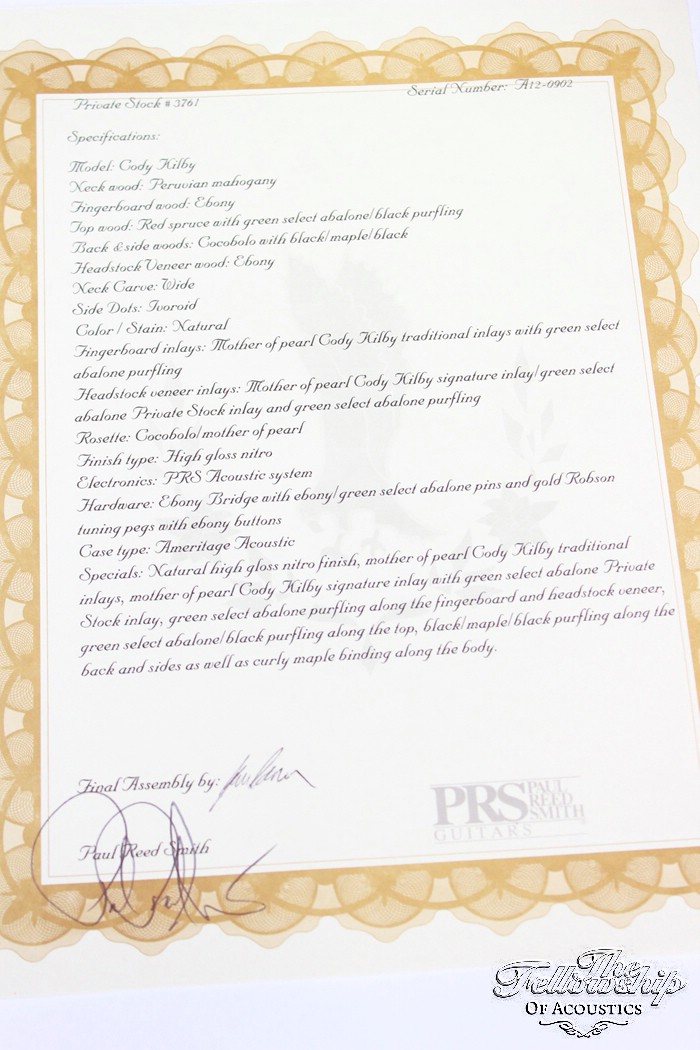 Private Stock # 3761
Serial Number: A12-0902
Specifications:
Model: Cody Kilby
Neck wood: Peruvian mahogany
Fingerboard wood: Ebony
Top wood: Red spruce with green select abalone/black purfling
Back & side woods: Cocobolo with black/maple/black
Headstock Veneer wood: Ebony
Neck Carve: Wide
Side Dots: Ivoroid
Color / Stain: Natural
Fingerboard inlays: Mother of pearl Cody Kilby traditional inlays with green select
abalone purfling
Headstock veneer inlays: Mother of pearl Cody Kilby signature inlay/green select
abalone Private Stock inlay and green select abalone purfling
Rosette: Cocobolo/mother of pearl
Finish type: High gloss nitro
Electronics: PRS Acoustic system
Hardware: Ebony Bridge with ebony/green select abalone pins and gold Robson
tuning pegs with ebony buttons
Case type: Ameritage Acoustic
Specials: Natural high gloss nitro finish, mother of pearl Cody Kilby traditional
inlays, mother of pearl Cody Kilby signature inlay with green select abalone Private
Stock inlay, green select abalone purfling along the fingerboard and headstock veneer,
green select abalone/black purfling along the top, black/maple/black purfling along the
back and sides as well as curly maple binding along the body.
Final Assembly by:
PRS PAUL
REED
SMITH
GUITARS
Paul Reed Smith
The
Fellowship
Of Acoustics